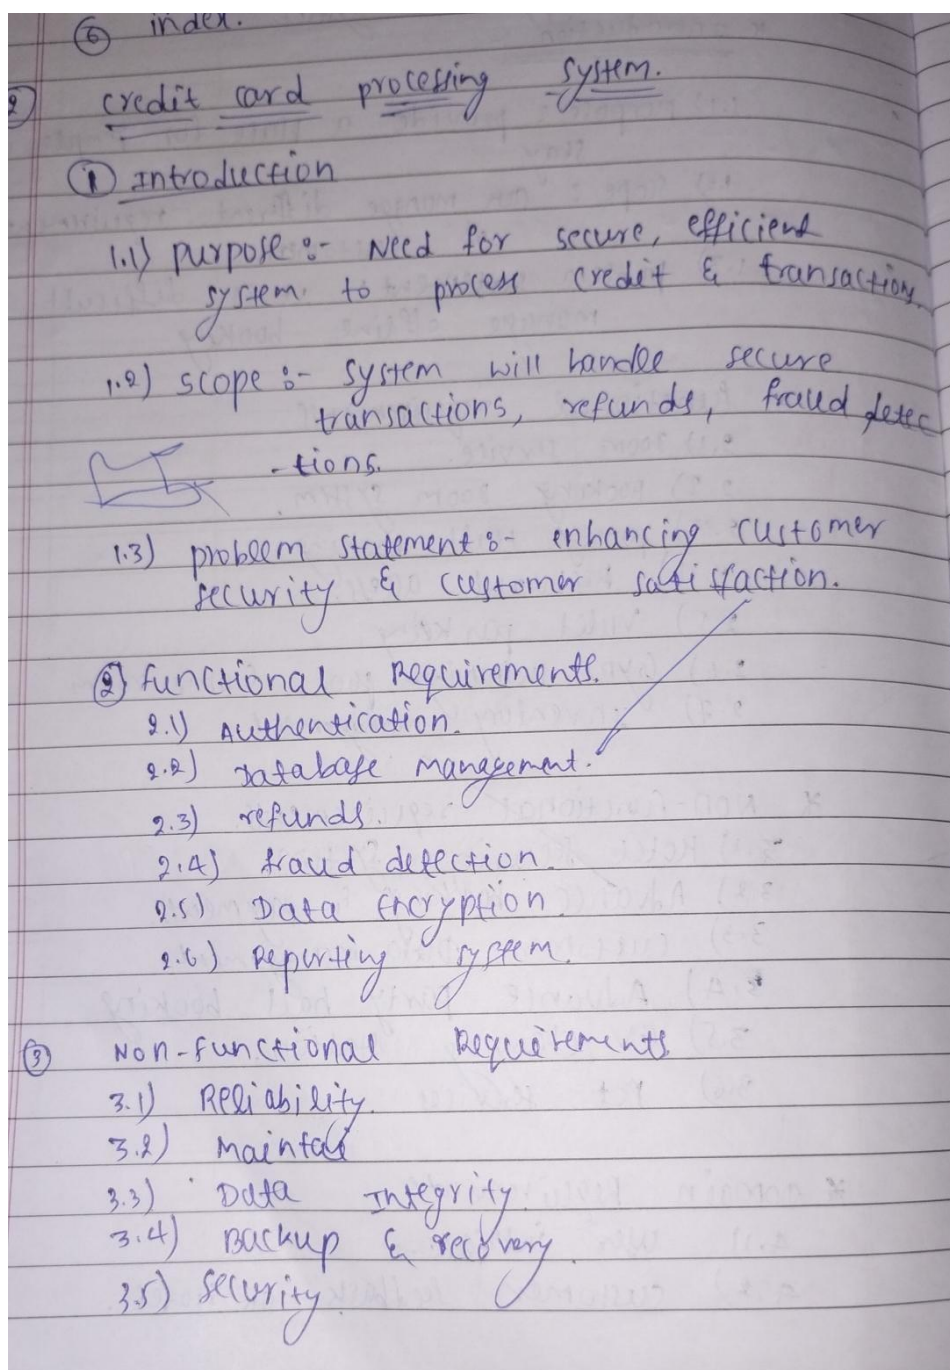 ⑥ index.
2) credit card processing system.
① Introduction
1.1) purpose :- Need for secure, efficient
system. to process credit & transactions
1.2) scope :- system will handle secure
transactions, refunds, fraud detec
-tions.
1.3) problem statement :- enhancing customer
security & customer satisfaction.
② functional Requirements.
2.1) Authentication.
2.2) Database management.
2.3) refunds.
2.4) fraud detection.
2.5) Data Encryption
2.6) Reporting system.
③ Non-functional Requirements
3.1) Reliability.
3.2)
3.3) Data Integrity.
3.4) Backup & recovery.
3.5) security.